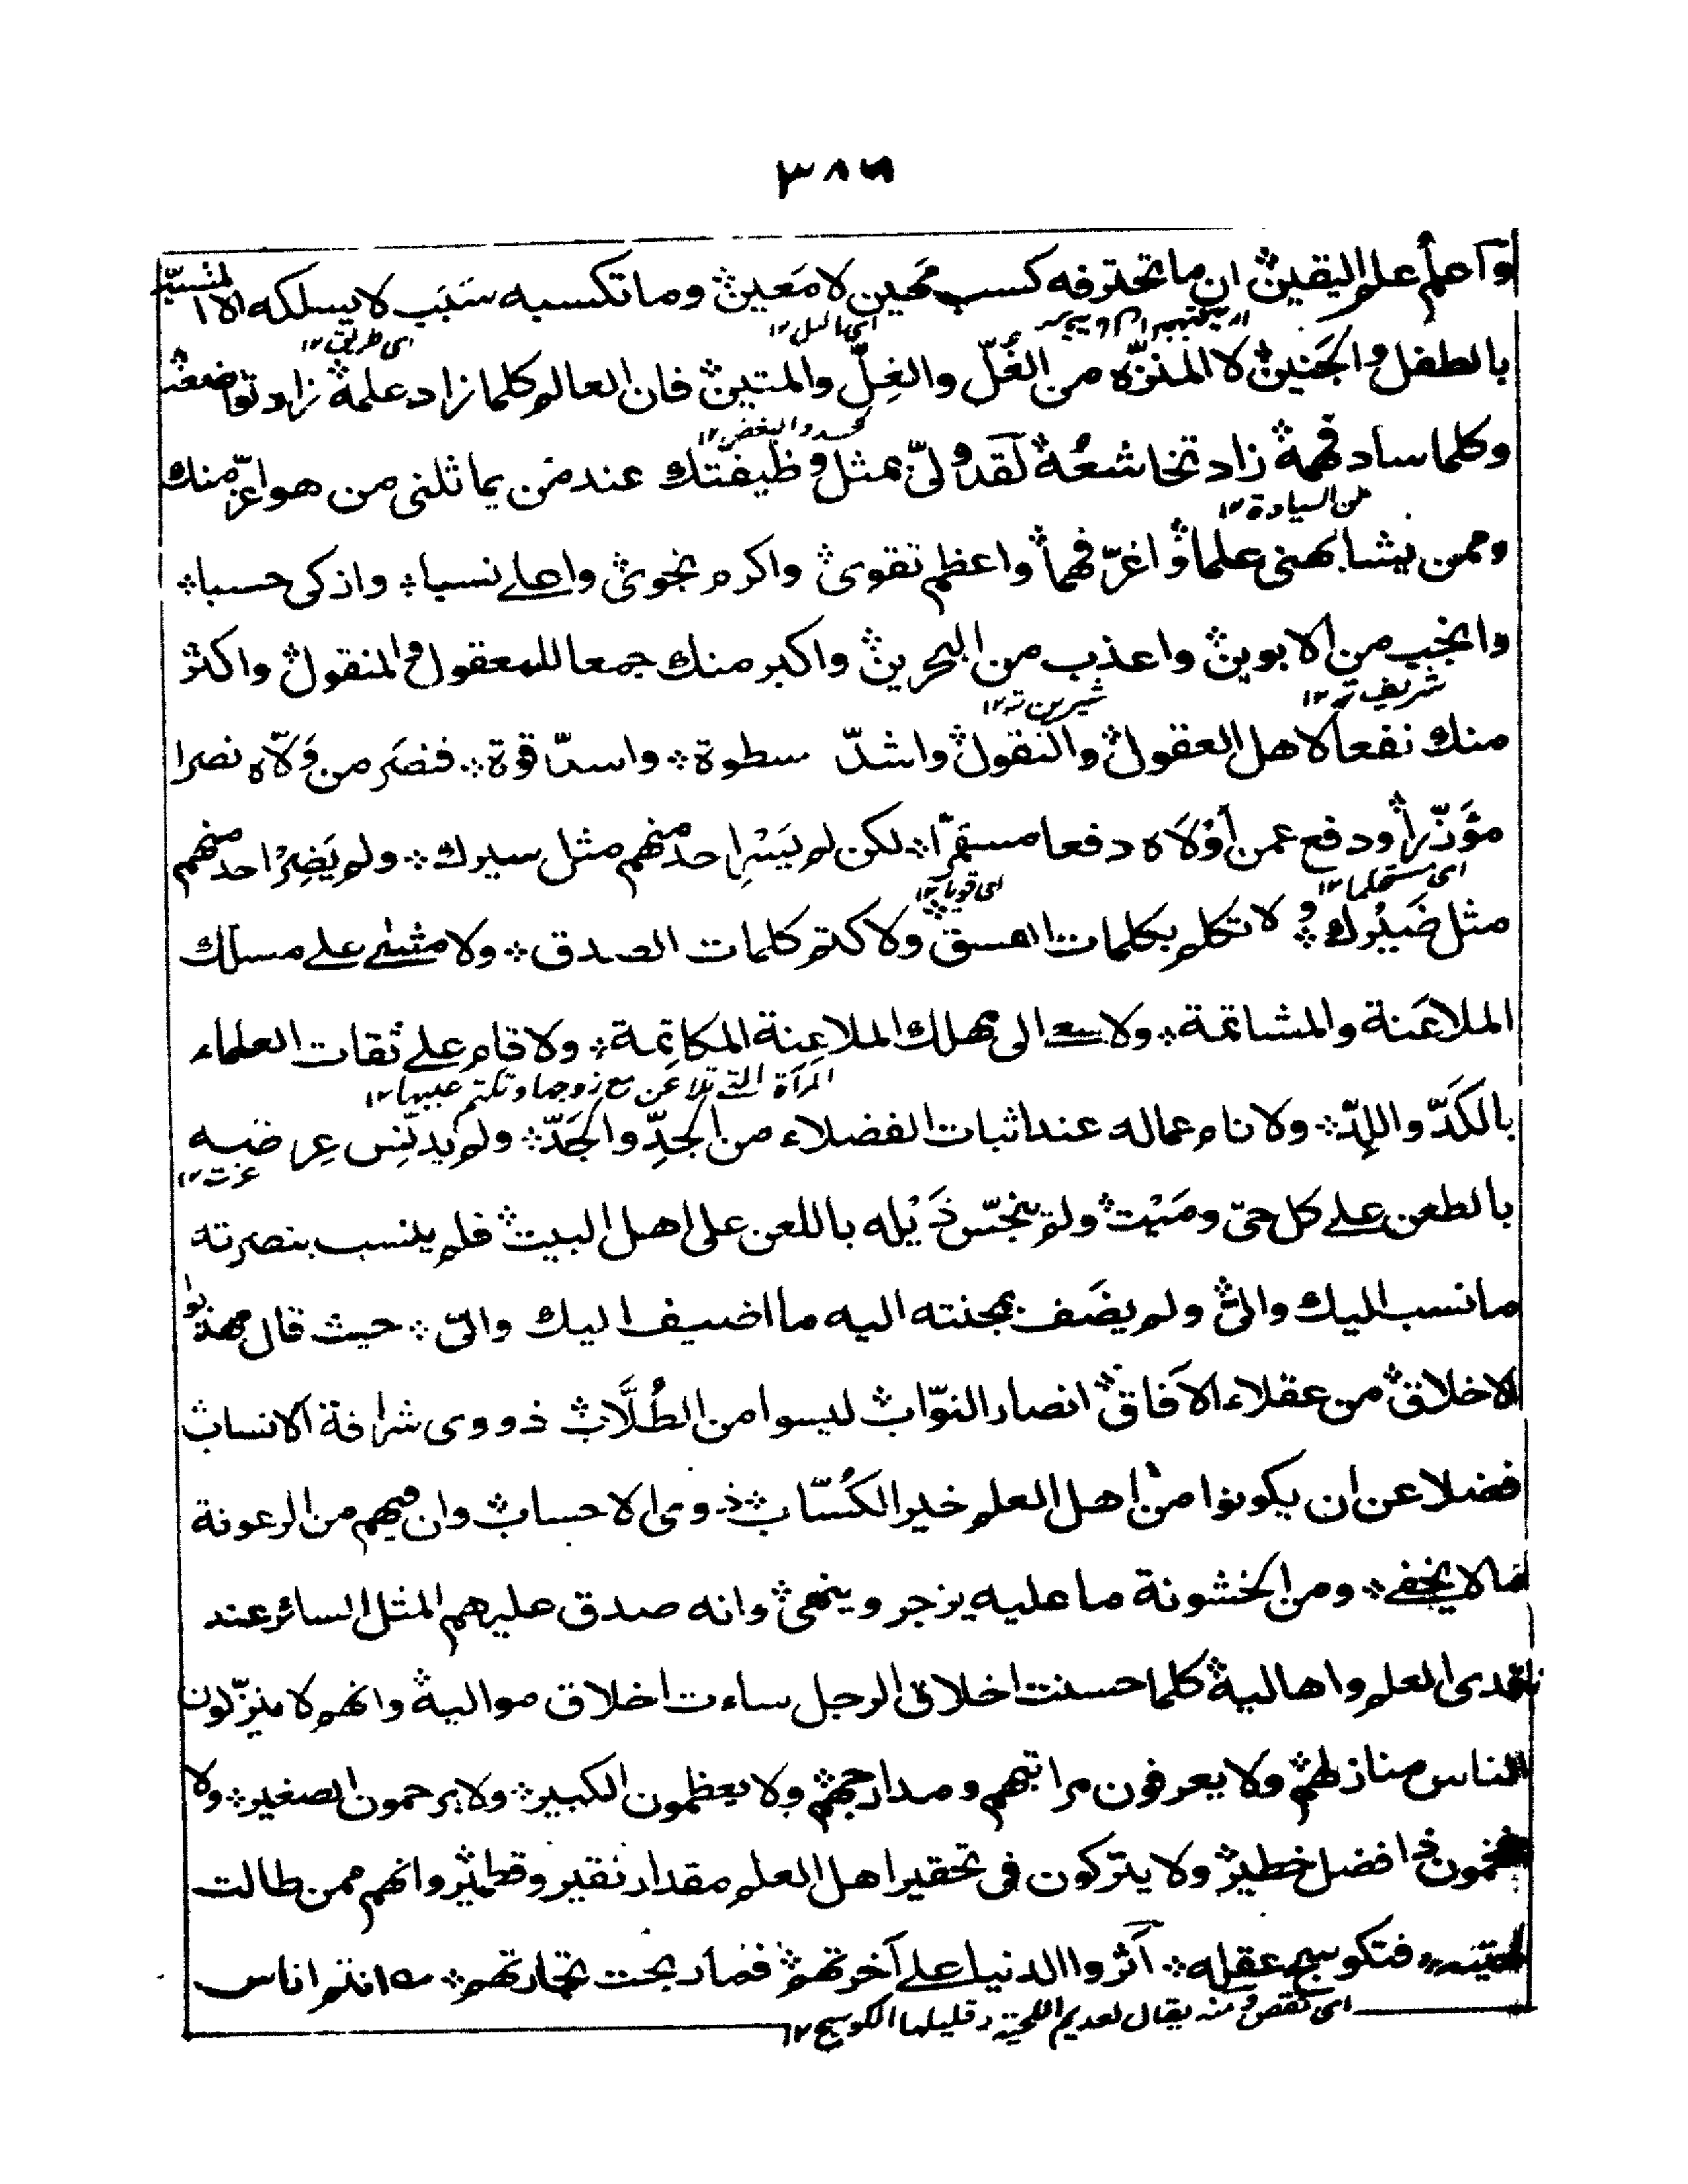 ٣٨٦
وآعلم علم اليقين۞ ان ما تحترفه كسب مَحين لا مَعين۞ وما تكسبه سَبَب لا يسلكه الا المشبّه
اى طريق ١٢
بالطفل والجَنين۞ لا المنزّه من الغُلّ والغِلّ والمتين۞ فان العالم كلما زاد علمه۞ زاد تواضعه۞
حسد والبغض ١٢
وكلما ساد فهمه۞ زاد تخاشعُه۞ لقد ولىّ بمثل وظيفتك عند من يماثلنى من هو اعزّ منك
من السيادة ١٢
وممن يشابهنى علما۞ واغرّ فهما۞ واعظم تقوى۞ واكرم نجوى۞ واعلے نسبا۞ واذكى حسبا۞
وانجب من الابوين۞ واعذب من البحرين۞ واكبر منك جمعا للمعقول والمنقول۞ واكثر
شريف تر ١٢ شيرين تر ١٢
منك نفعا لاهل العقول۞ والنقول۞ واشدّ سطوة۞ واسدّ قوة۞ فنصَر من وَلّاه نصرا
مؤَذّرا۞ ودفع عمن أوْلَاه دفعا مستمرّا۞ لكن لم يَسْرِ احد منهم مثل سيرك۞ ولم يَضِرْ احد منهم
اى مستحكما ١٢ اى قويا ١٢
مثل ضَيْرك۞ ولا تكلم بكلمات الفسق۞ ولا كتم كلمات الصدق۞ ولا مشے علے مسلك
الملاعَنة والمشاتمة۞ ولا سعے الى مهلك الملاعِنة المكاتِمة۞ ولا قام علے ثقات العلماء
المرآة التے تلاعن مع زوجها وتكتم عيبها ١٢
بالكَدّ واللِدّ۞ ولا نام عماله عند اثبات الفضلاء من الجِدّ والجَدّ۞ ولم يدنّس عِرضه
عزت ١٢
بالطعن علے كل حىّ ومَيْت۞ ولم ينجّس ذَيْله باللعن على اهل البيت۞ فلم ينسب بنصرته
ما نسب اليك والىّ۞ ولم يضَف بمجنته اليه ما اضيف اليك والىّ۞ حيث قال مهذبوا
الاخلاق۞ من عقلاء الآفاق۞ انصار النوّاب۞ ليسوا من الطُلَّاب۞ ذووى شرافة الانساب۞
فضلا عن ان يكونوا من اهل العلم خير الكُسّاب۞ ذوى الاحساب۞ وان فيهم من الرعونة
ما لا يخفے۞ ومن الخشونة ما عليه يزجر وينهى۞ وانه صدق عليهم المثل السائر عند
ناقدى العلم واهاليه۞ كلما حسنت اخلاق الرجل ساءت اخلاق مواليه۞ وانهم لا ينزّلون
الناس منازلهم۞ ولا يعرفون مراتبهم ومدارجهم۞ ولا يعظمون الكبير۞ ولا يرحمون الصغير۞ ولا
ذا فضل خطير۞ ولا يتركون فى تحقير اهل العلم مقدار نقير وقطمير۞ وانهم ممن طالت
لحيته۞ فتكوسج عقله۞ آثروا الدنيا علے آخرتهم۞ فما ربحت تجارتهم۞ انتم اناس
اى نقص ومنه يقال لعديم اللحية وقليلها الكوسج ١٢